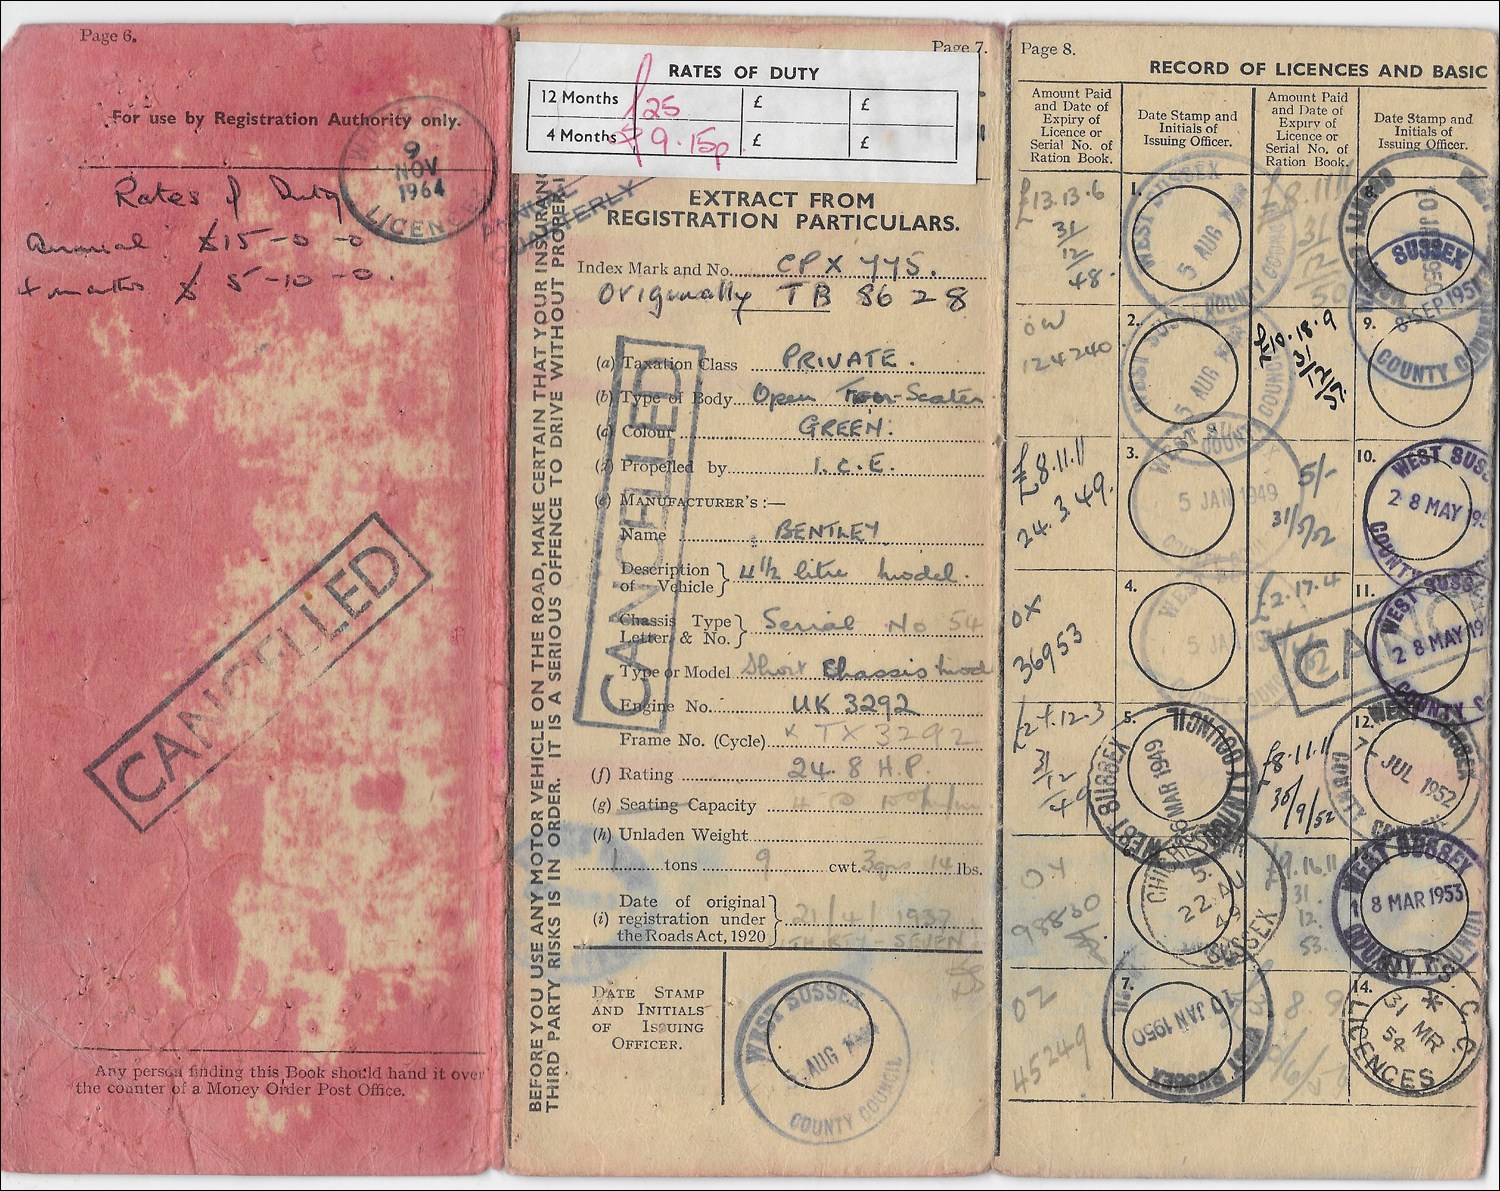 Page 6.
For use by Registration Authority only.
9
NOV
1964
LICENCES
Rates of Duty
Annual £15-0-0
4 months £5-10-0.
CANCELLED
Any person finding this Book should hand it over
the counter of a Money Order Post Office.
Page 7.
RATES OF DUTY
12 Months £25 £ £
4 Months £9.15p. £ £
QUARTERLY
EXTRACT FROM
REGISTRATION PARTICULARS.
Index Mark and No. CPX 775.
Originally TB 8628
(a) Taxation Class PRIVATE.
(b) Type of Body Open Four-Seater
(c) Colour GREEN.
(d) Propelled by I.C.E.
(e) MANUFACTURER'S :—
Name BENTLEY
Description of Vehicle } 4½ litre model.
Chassis Type Letter & No. } Serial No 54
Type or Model Short Chassis mod
Engine No. UK 3292
Frame No. (Cycle) x TX 3292
(f) Rating 24.8 H.P.
(g) Seating Capacity
(h) Unladen Weight
1 tons 9 cwt. 3qrs 14 lbs.
(i) Date of original registration under the Roads Act, 1920 } 21/4/1937
THIRTY-SEVEN
CANCELLED
DATE STAMP
AND INITIALS
OF ISSUING
OFFICER.
WEST SUSSEX
5 AUG
COUNTY COUNCIL
BEFORE YOU USE ANY MOTOR VEHICLE ON THE ROAD, MAKE CERTAIN THAT YOUR INSURANC
THIRD PARTY RISKS IS IN ORDER. IT IS A SERIOUS OFFENCE TO DRIVE WITHOUT PROPER
Page 8.
RECORD OF LICENCES AND BASIC
Amount Paid
and Date of
Expiry of
Licence or
Serial No. of
Ration Book.
Date Stamp and
Initials of
Issuing Officer.
Amount Paid
and Date of
Expiry of
Licence or
Serial No. of
Ration Book.
Date Stamp and
Initials of
Issuing Officer.
£13.13.6
31/12/48.
1.
WEST SUSSEX
5 AUG
COUNTY COUNCIL
£8.11.11
31/12/50
8.
SUSSEX
8 SEP 1951
COUNTY COUNC
OW
124240
2.
5 AUG
£10.18.9
31/12/51.
9.
£8.11.11
24.3.49.
3.
WEST SU
5 JAN 1949
5/-
31/5/52
10.
WEST SUSS
28 MAY 195
COUNTY
OX
36953
4.
5 JAN
£2.17.4
CA
11.
WEST SUSSE
28 MAY 19
COUNTY C
31/12/49
5.
WEST SUSSEX
MAR 1949
COUNTY COUNCIL
£8.11.11
30/9/52
12.
WEST SUSSEX
7 JUL 1952
COUNTY
OY
98830
22 AU
49
SUSSEX
£9.16.11
31.
12.
53.
WEST SUSSEX
18 MAR 1953
COUNTY COUNCIL
OZ
45249
7.
10 JAN 1950
WEST SUSSEX
14.
31 MR
54
LICENCES